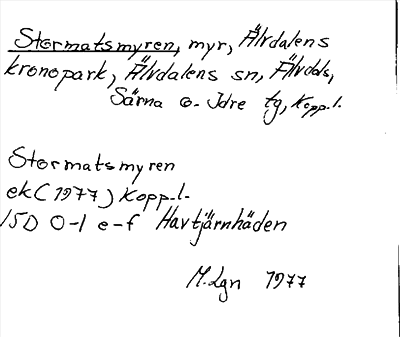 Stormatsmyren, myr, Älvdalens
kronopark, Älvdalens sn, Älvdals,
Särna o. Idre tg, Kopp.l.
Stormatsmyren
ek (1977) Kopp.l.
15D 0-1 e-f Havtjärnhäden
M.Lgn 1977